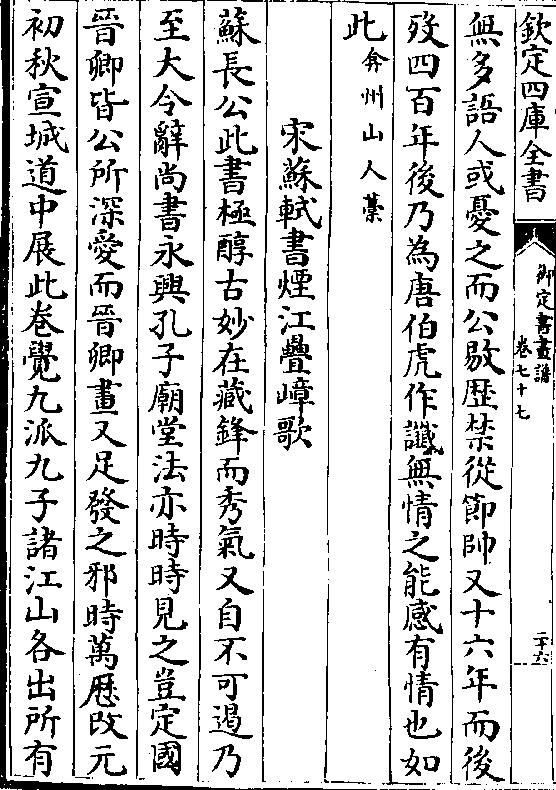 欽定四庫全書
御定書畫譜
卷七十七
二十六
無多語人或憂之而公敭歴禁從節帥又十六年而後
歿四百年後乃為唐伯虎作讖無情之能感有情也如
此弇州山人藁
宋蘇軾書煙江疊嶂歌
蘇長公此書極醇古妙在藏鋒而秀氣又自不可遏乃
至大令辭尚書永興孔子廟堂法亦時時見之豈定國
晉卿皆公所深愛而晉卿畫又足發之邪時萬厯改元
初秋宣城道中展此卷覺九派九子諸江山各出所有